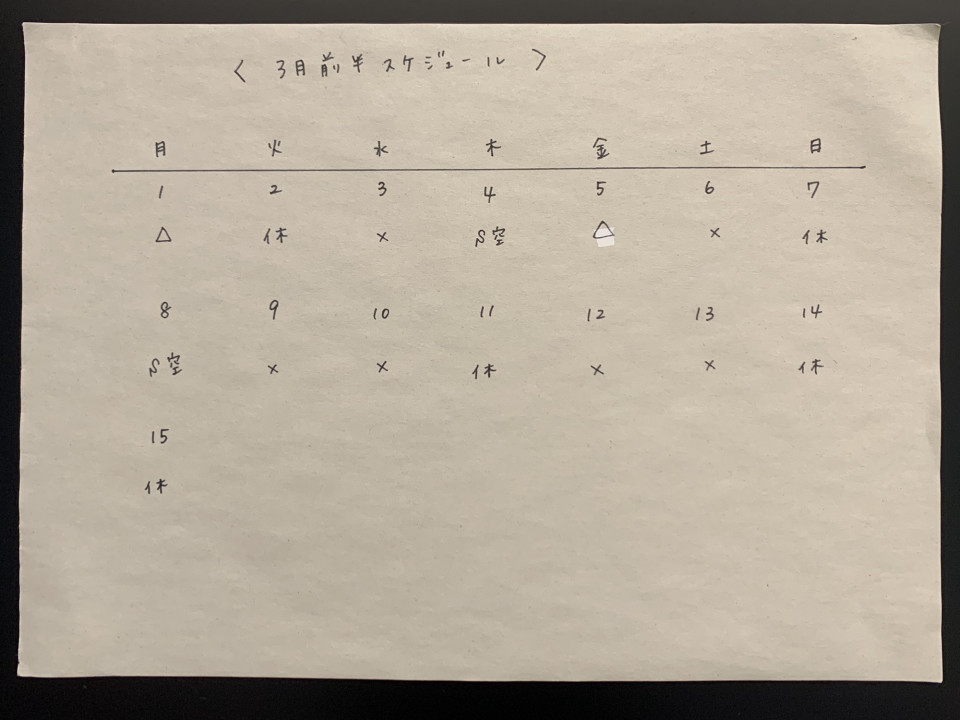 〈 3月前半スケジュール 〉
月 火 水 木 金 土 日
1 2 3 4 5 6 7
△ 休 × S空 △ × 休
8 9 10 11 12 13 14
S空 × × 休 × × 休
15
休